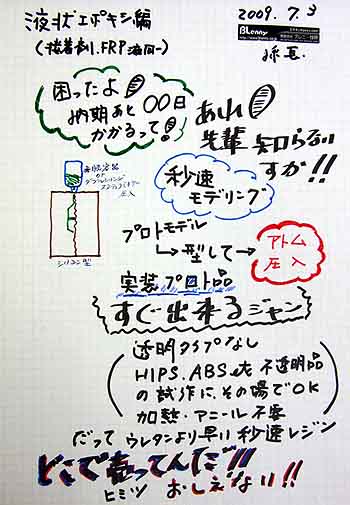 液状エポキシ編
2009.7.3
(接着剤、FRP 適用ー)
BLenny
困ったよ!
納期あと〇〇日
かかるって!
あれ!
先輩 知らない
すか!!
秒速
モデリング
圧入
シリコン型
プロトモデル
→型して→
アトム
圧入
実装プロト品
すぐ出来るジャン
透明タイプなし
HIPS、ABS etc 不透明品
の試作に、その場でOK
加熱・アニール不要
だって ウレタンより早い 秒速レジン
どこで売ってんだ!!!
ヒミツ おしえない!!